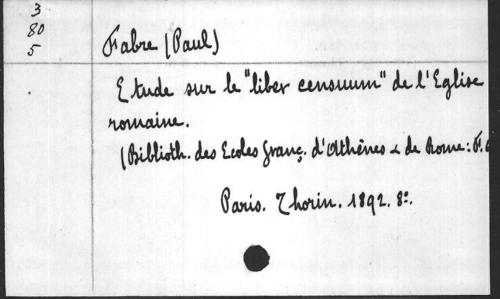 3
80
5
Fabre (Paul)
Etude sur le "liber censuum" de l'Eglise
romaine.
(Biblioth. des Ecoles franç. d'Athènes & de Rome: F.
Paris. Thorin. 1892. 8º.